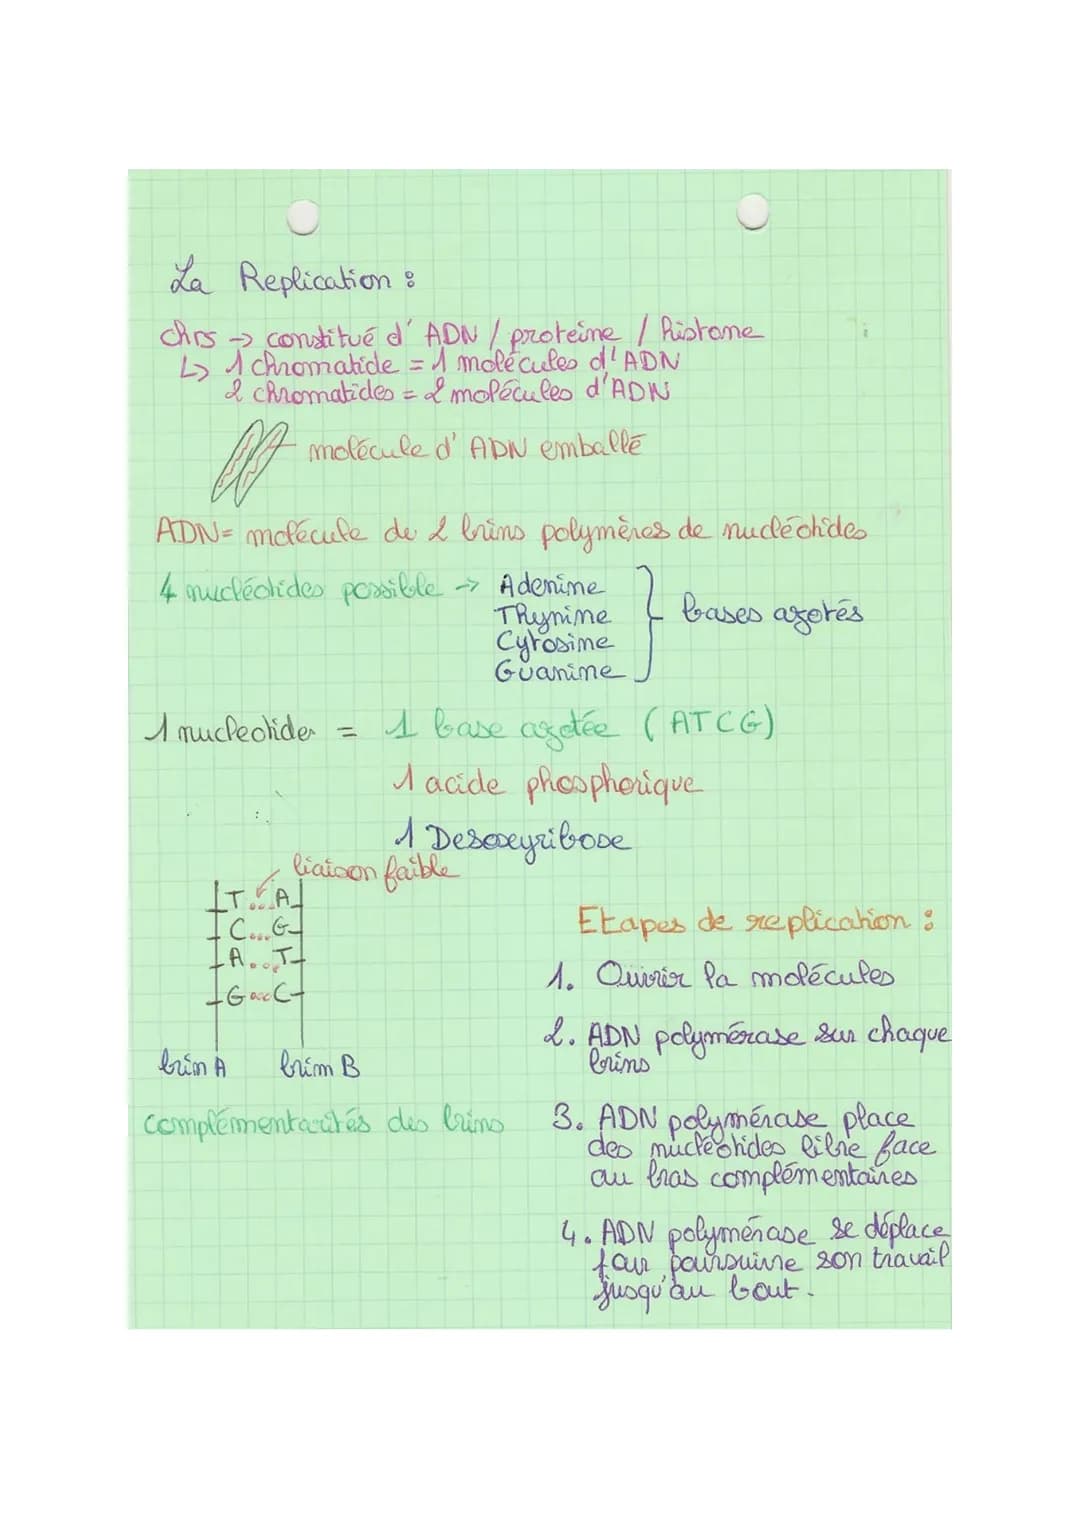 La Replication :
chrs → constitué d' ADN / proteine / histone
↳ 1 chromatide = 1 molécules d'ADN
2 chromatides = 2 molécules d'ADN
molécule d' ADN emballé
ADN = molécule de 2 brins polymères de nucléotides
4 nucléotides possible → Adenine
Thynine
Cytosine
Guanine
bases azotés
1 nucleotides = 1 base azotée (ATCG)
1 acide phosphorique
1 Desoxyribose
liaison faible
T...A
C...G
A...T
G...C
brin A brin B
complémentarités des brins
Etapes de replication :
1. Ouvrir la molécules
2. ADN polymérase sur chaque
brins
3. ADN polymérase place
des nucléotides libre face
au bras complémentaires
4. ADN polymérase se déplace
pour poursuivre son travail
jusqu'au bout.